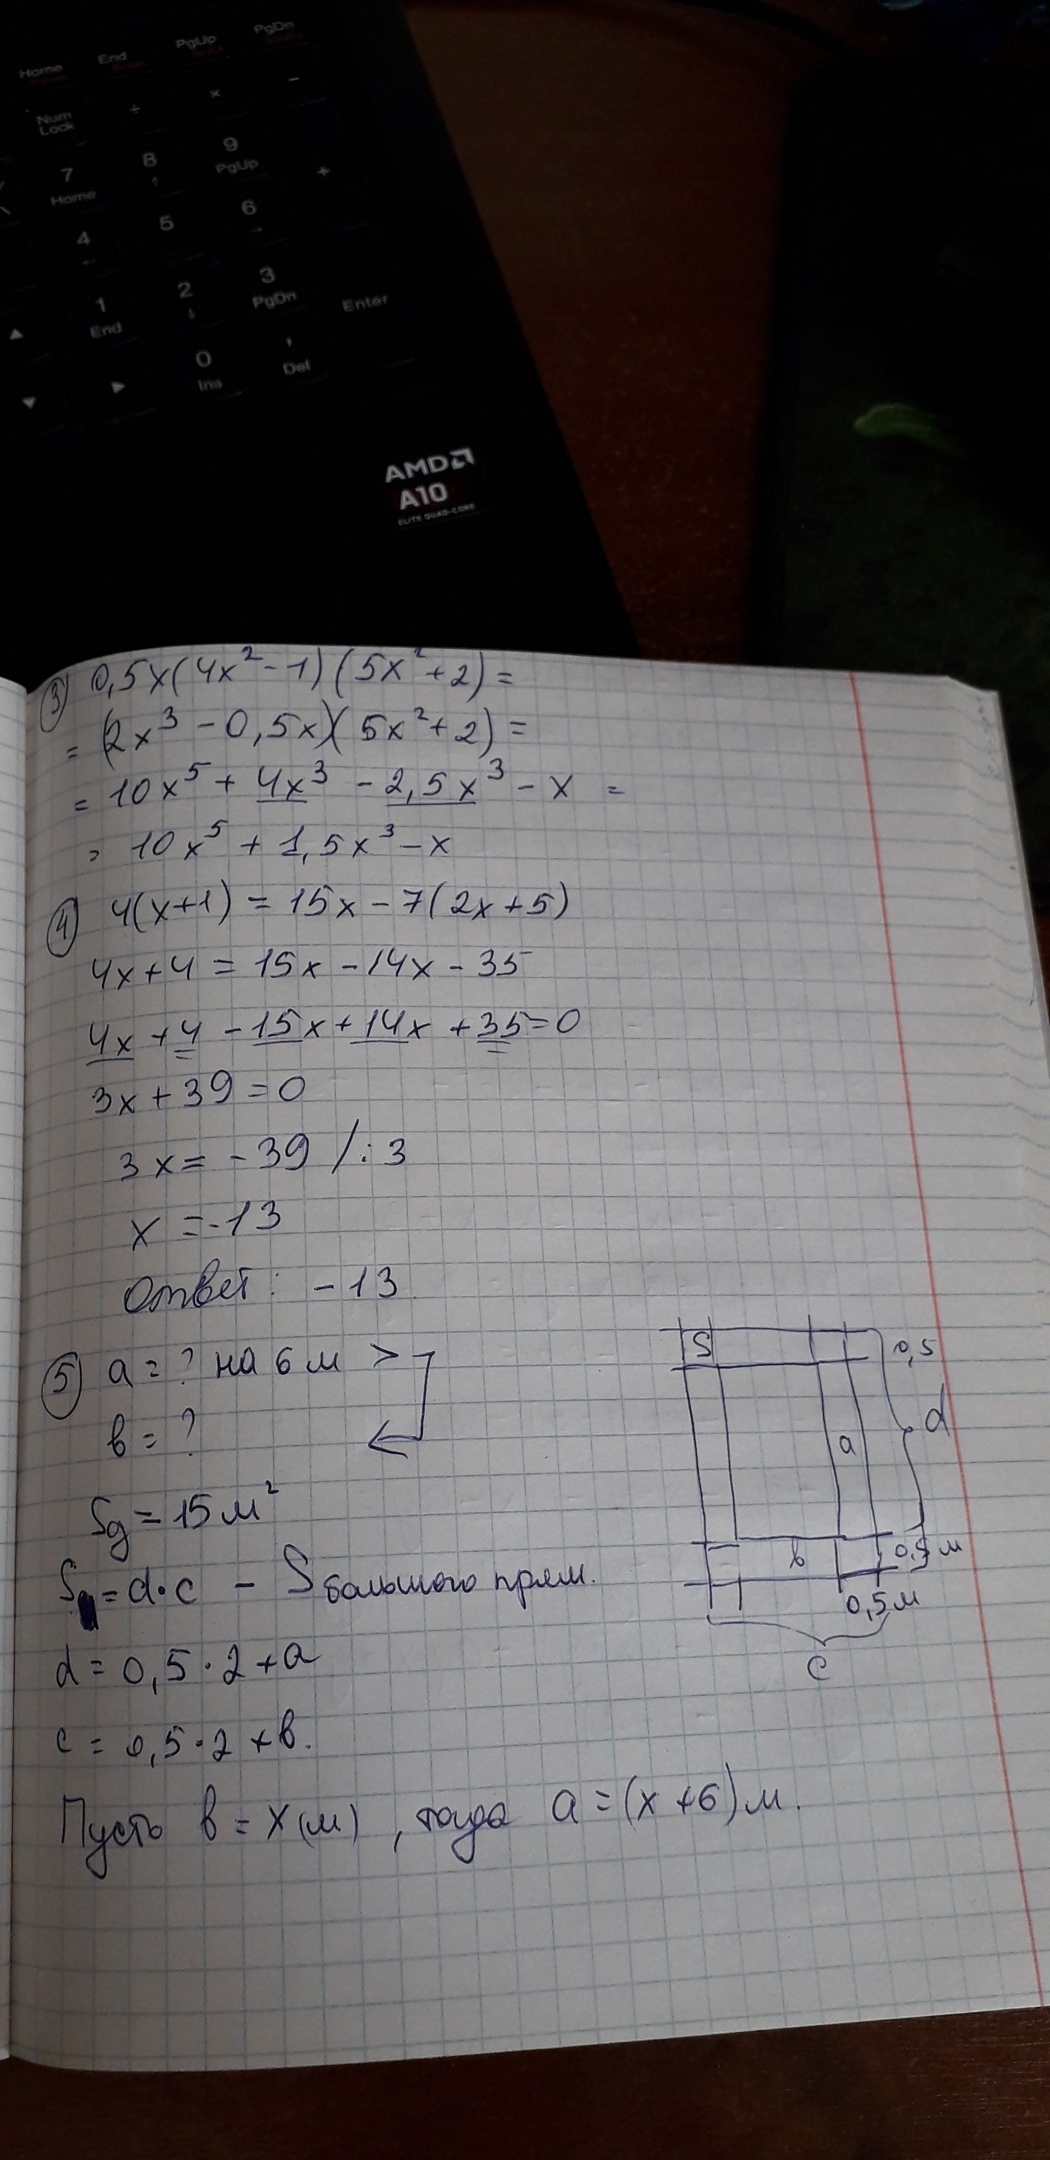 Home End PgUp PgDn
Num Lock ÷ × −
7 8 9 +
Home ↑ PgUp
4 5 6
← →
1 2 3 Enter
End ↓ PgDn
0 ,
Ins Del
AMD
A10
ELITE QUAD-CORE
③ 0,5x(4x²-1)(5x²+2)=
= (2x³-0,5x)(5x²+2)=
= 10x⁵+4x³-2,5x³-x =
= 10x⁵+1,5x³-x
④ 4(x+1)=15x-7(2x+5)
4x+4=15x-14x-35
4x+4-15x+14x+35=0
3x+39=0
3x=-39 /:3
x=-13
Ответ: -13
⑤ a=? на 6 м >
в=?
Sg=15м²
S =d·c - Sбольшого прям.
d=0,5·2+a
c=0,5·2+в.
Пусть в=x(м), тогда a=(x+6)м.
S
0,5
d
a
в
0,5 м
0,5 м
c